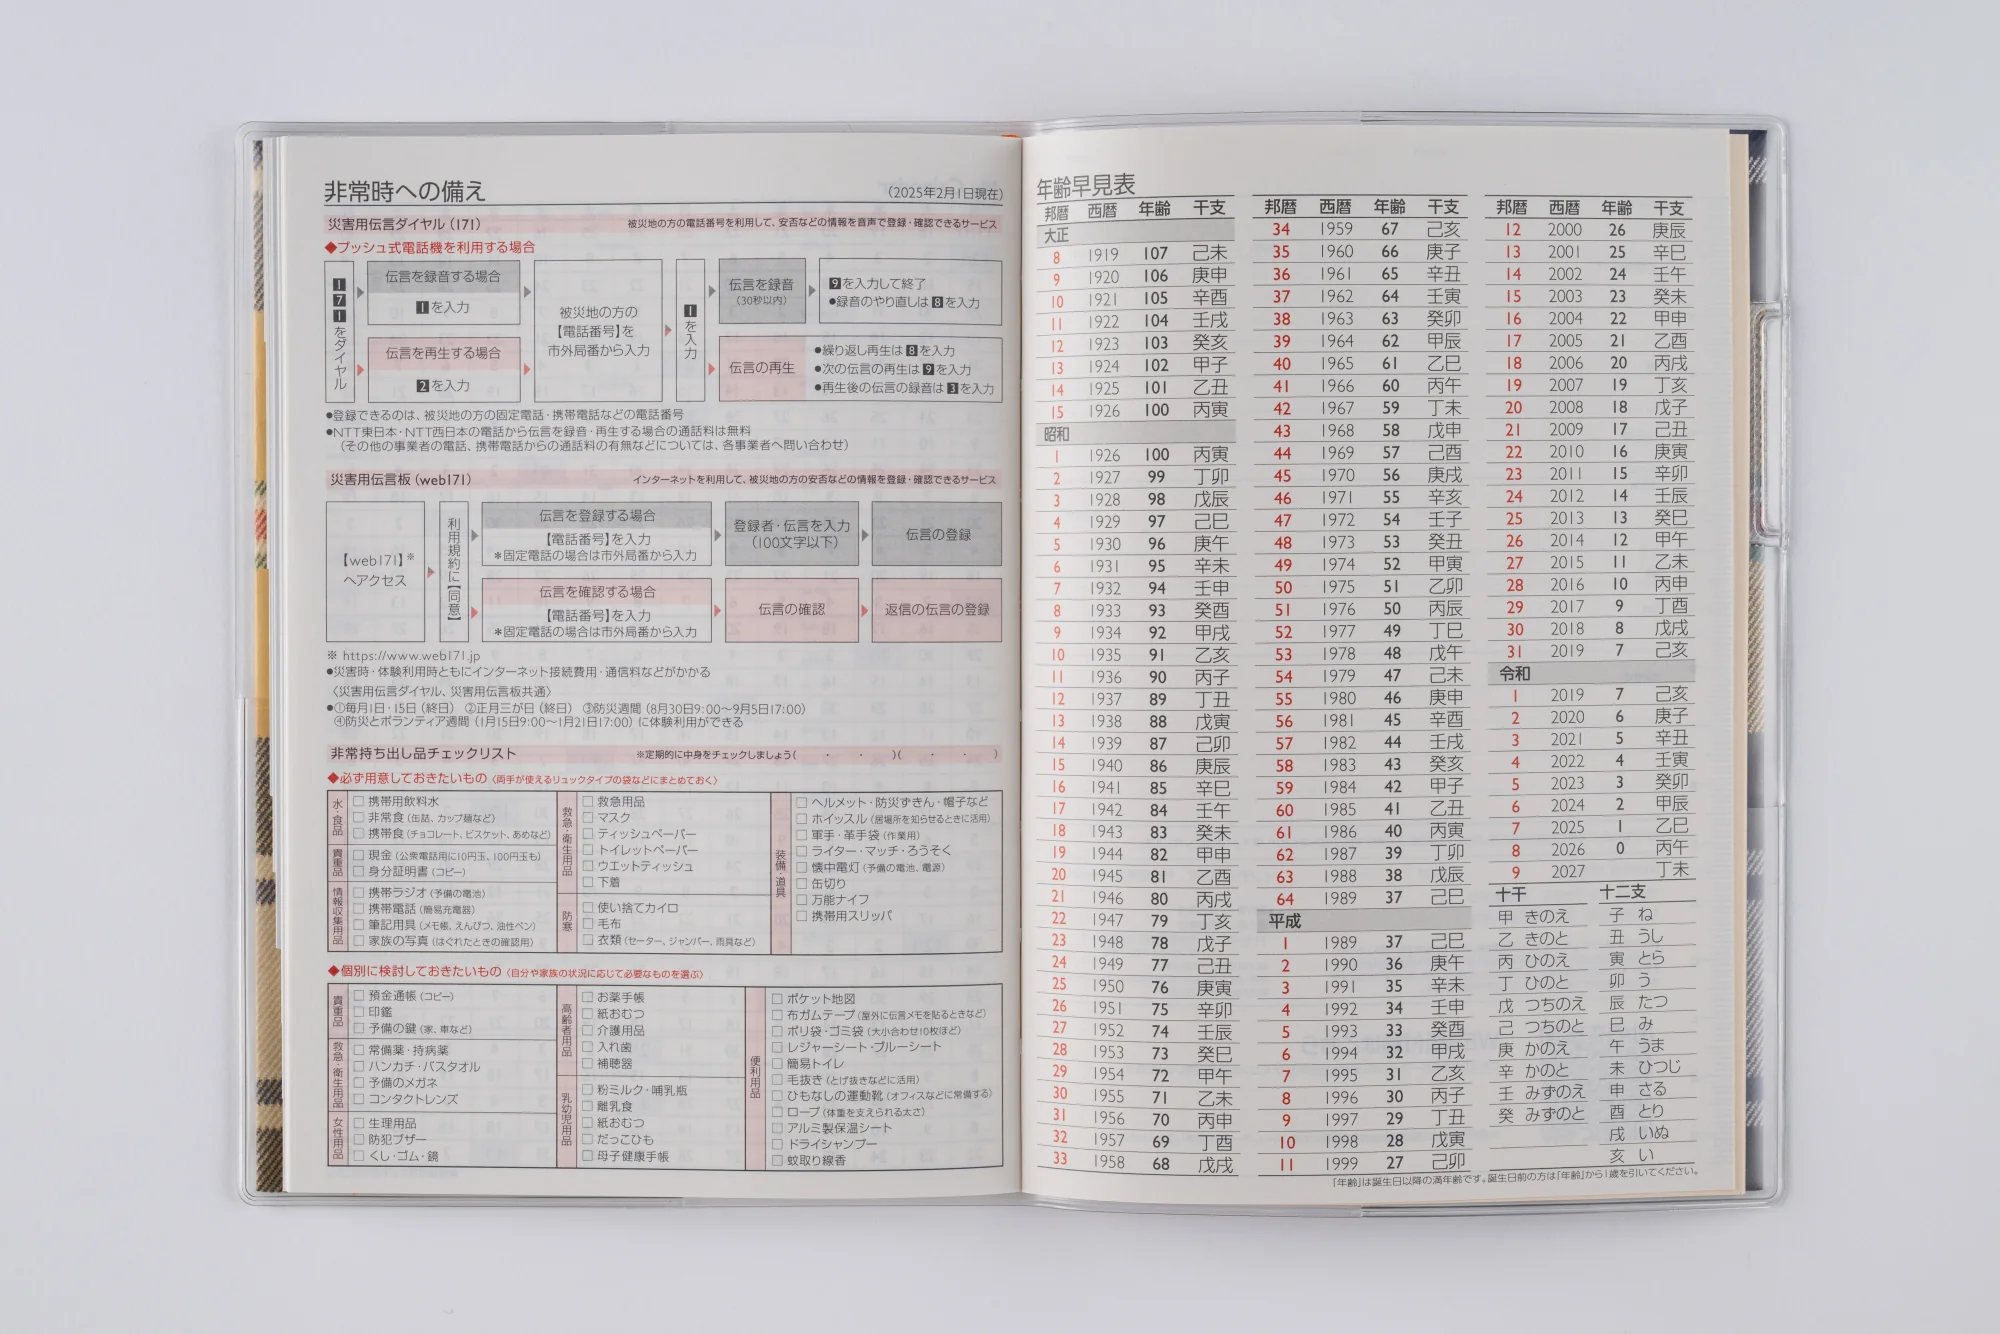 非常時への備え
（2025年2月1日現在）
災害用伝言ダイヤル（171）
被災地の方の電話番号を利用して、安否などの情報を音声で登録・確認できるサービス
◆プッシュ式電話機を利用する場合
171をダイヤル
伝言を録音する場合
1を入力
伝言を再生する場合
2を入力
被災地の方の
【電話番号】を
市外局番から入力
1を入力
伝言を録音
（30秒以内）
9を入力して終了
●録音のやり直しは8を入力
伝言の再生
●繰り返し再生は8を入力
●次の伝言の再生は9を入力
●再生後の伝言の録音は3を入力
●登録できるのは、被災地の方の固定電話・携帯電話などの電話番号
●NTT東日本・NTT西日本の電話から伝言を録音・再生する場合の通話料は無料
（その他の事業者の電話、携帯電話からの通話料の有無などについては、各事業者へ問い合わせ）
災害用伝言板（web171）
インターネットを利用して、被災地の方の安否などの情報を登録・確認できるサービス
【web171】※
へアクセス
利用規約に【同意】
伝言を登録する場合
【電話番号】を入力
＊固定電話の場合は市外局番から入力
登録者・伝言を入力
（100文字以下）
伝言の登録
伝言を確認する場合
【電話番号】を入力
＊固定電話の場合は市外局番から入力
伝言の確認
返信の伝言の登録
※ https://www.web171.jp
●災害時・体験利用時ともにインターネット接続費用・通信料などがかかる
〈災害用伝言ダイヤル、災害用伝言板共通〉
●①毎月1日・15日（終日） ②正月三が日（終日） ③防災週間（8月30日9:00～9月5日17:00）
④防災とボランティア週間（1月15日9:00～1月21日17:00）に体験利用ができる
非常持ち出し品チェックリスト
※定期的に中身をチェックしましょう（ ・ ・ ）（ ・ ・ ）
◆必ず用意しておきたいもの〈両手が使えるリュックタイプの袋などにまとめておく〉
水・食品
□ 携帯用飲料水
□ 非常食（缶詰、カップ麺など）
□ 携帯食（チョコレート、ビスケット、あめなど）
貴重品
□ 現金（公衆電話用に10円玉、100円玉も）
□ 身分証明書（コピー）
情報収集用品
□ 携帯ラジオ（予備の電池）
□ 携帯電話（簡易充電器）
□ 筆記用具（メモ帳、えんぴつ、油性ペン）
□ 家族の写真（はぐれたときの確認用）
救急・衛生用品
□ 救急用品
□ マスク
□ ティッシュペーパー
□ トイレットペーパー
□ ウエットティッシュ
□ 下着
防寒
□ 使い捨てカイロ
□ 毛布
□ 衣類（セーター、ジャンパー、雨具など）
装備・道具
□ ヘルメット・防災ずきん・帽子など
□ ホイッスル（居場所を知らせるときに活用）
□ 軍手・革手袋（作業用）
□ ライター・マッチ・ろうそく
□ 懐中電灯（予備の電池、電源）
□ 缶切り
□ 万能ナイフ
□ 携帯用スリッパ
◆個別に検討しておきたいもの〈自分や家族の状況に応じて必要なものを選ぶ〉
貴重品
□ 預金通帳（コピー）
□ 印鑑
□ 予備の鍵（家、車など）
救急・衛生用品
□ 常備薬・持病薬
□ ハンカチ・バスタオル
□ 予備のメガネ
□ コンタクトレンズ
女性用品
□ 生理用品
□ 防犯ブザー
□ くし・ゴム・鏡
高齢者用品
□ お薬手帳
□ 紙おむつ
□ 介護用品
□ 入れ歯
□ 補聴器
乳幼児用品
□ 粉ミルク・哺乳瓶
□ 離乳食
□ 紙おむつ
□ だっこひも
□ 母子健康手帳
便利用品
□ ポケット地図
□ 布ガムテープ（屋外に伝言メモを貼るときなど）
□ ポリ袋・ゴミ袋（大小合わせ10枚ほど）
□ レジャーシート・ブルーシート
□ 簡易トイレ
□ 毛抜き（とげ抜きなどに活用）
□ ひもなしの運動靴（オフィスなどに常備する）
□ ロープ（体重を支えられる太さ）
□ アルミ製保温シート
□ ドライシャンプー
□ 蚊取り線香
年齢早見表
邦暦 西暦 年齢 干支
大正
8 1919 107 己未
9 1920 106 庚申
10 1921 105 辛酉
11 1922 104 壬戌
12 1923 103 癸亥
13 1924 102 甲子
14 1925 101 乙丑
15 1926 100 丙寅
昭和
1 1926 100 丙寅
2 1927 99 丁卯
3 1928 98 戊辰
4 1929 97 己巳
5 1930 96 庚午
6 1931 95 辛未
7 1932 94 壬申
8 1933 93 癸酉
9 1934 92 甲戌
10 1935 91 乙亥
11 1936 90 丙子
12 1937 89 丁丑
13 1938 88 戊寅
14 1939 87 己卯
15 1940 86 庚辰
16 1941 85 辛巳
17 1942 84 壬午
18 1943 83 癸未
19 1944 82 甲申
20 1945 81 乙酉
21 1946 80 丙戌
22 1947 79 丁亥
23 1948 78 戊子
24 1949 77 己丑
25 1950 76 庚寅
26 1951 75 辛卯
27 1952 74 壬辰
28 1953 73 癸巳
29 1954 72 甲午
30 1955 71 乙未
31 1956 70 丙申
32 1957 69 丁酉
33 1958 68 戊戌
邦暦 西暦 年齢 干支
34 1959 67 己亥
35 1960 66 庚子
36 1961 65 辛丑
37 1962 64 壬寅
38 1963 63 癸卯
39 1964 62 甲辰
40 1965 61 乙巳
41 1966 60 丙午
42 1967 59 丁未
43 1968 58 戊申
44 1969 57 己酉
45 1970 56 庚戌
46 1971 55 辛亥
47 1972 54 壬子
48 1973 53 癸丑
49 1974 52 甲寅
50 1975 51 乙卯
51 1976 50 丙辰
52 1977 49 丁巳
53 1978 48 戊午
54 1979 47 己未
55 1980 46 庚申
56 1981 45 辛酉
57 1982 44 壬戌
58 1983 43 癸亥
59 1984 42 甲子
60 1985 41 乙丑
61 1986 40 丙寅
62 1987 39 丁卯
63 1988 38 戊辰
64 1989 37 己巳
平成
1 1989 37 己巳
2 1990 36 庚午
3 1991 35 辛未
4 1992 34 壬申
5 1993 33 癸酉
6 1994 32 甲戌
7 1995 31 乙亥
8 1996 30 丙子
9 1997 29 丁丑
10 1998 28 戊寅
11 1999 27 己卯
邦暦 西暦 年齢 干支
12 2000 26 庚辰
13 2001 25 辛巳
14 2002 24 壬午
15 2003 23 癸未
16 2004 22 甲申
17 2005 21 乙酉
18 2006 20 丙戌
19 2007 19 丁亥
20 2008 18 戊子
21 2009 17 己丑
22 2010 16 庚寅
23 2011 15 辛卯
24 2012 14 壬辰
25 2013 13 癸巳
26 2014 12 甲午
27 2015 11 乙未
28 2016 10 丙申
29 2017 9 丁酉
30 2018 8 戊戌
31 2019 7 己亥
令和
1 2019 7 己亥
2 2020 6 庚子
3 2021 5 辛丑
4 2022 4 壬寅
5 2023 3 癸卯
6 2024 2 甲辰
7 2025 1 乙巳
8 2026 0 丙午
9 2027 丁未
十干 十二支
甲 きのえ 子 ね
乙 きのと 丑 うし
丙 ひのえ 寅 とら
丁 ひのと 卯 う
戊 つちのえ 辰 たつ
己 つちのと 巳 み
庚 かのえ 午 うま
辛 かのと 未 ひつじ
壬 みずのえ 申 さる
癸 みずのと 酉 とり
戌 いぬ
亥 い
「年齢」は誕生日以降の満年齢です。誕生日前の方は「年齢」から1歳を引いてください。